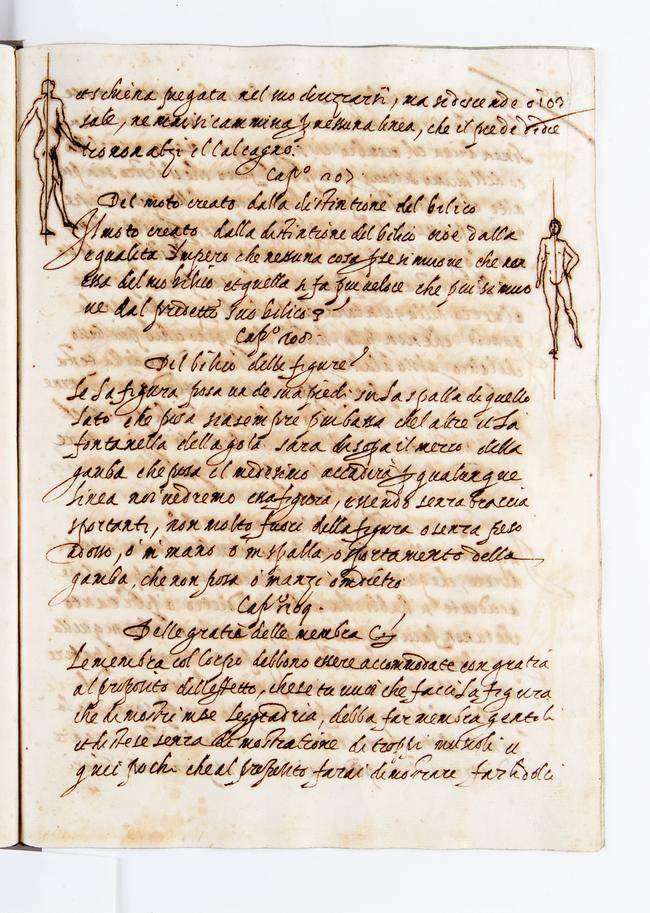 et schiena piegata nel suo dirizzarsi, ma si discende o
sale, ne mai si camina p nessuna linea, che il piede di die
tro non alzi il calcagno.
Cap.º 207.
Del moto creato dalla distintione del bilico
Il moto creato dalla distintione del bilico cioè dalla
inequalita Impero che nessuna cosa p se si muove che non
esca del suo bilico et quella si fa piu veloce che piu si rimuo
ve dal predetto suo bilico
Cap.º 208.
Del bilico delle figure
Se la figura posa un de suoi piedi su La spalla di quello
Lato che posa sia sempre piu bassa che l altre et La
fontanella della gola sara di sopra il mezzo della
gamba che posa il medesimo accadera p qualunque
linea noi vedremo essa figura, essendo senza braccia
sportanti, non molto fuori della figura o senza peso
adosso, o in mano o in spalla o sportamento della
gamba, che non posa o inanzi o indietro
Cap.º 209.
Delle gratie delle membra
Le membra col Corpo debbono essere accommodate con gratia
al proposito dell effetto, che se tu vuoi che facci La figura
che dimostri in se Leggiadria, debba far membra gentili
et distese senza dimostratione di troppi muscoli et
quei pochi che al proposito farai dimostrare farli dolci